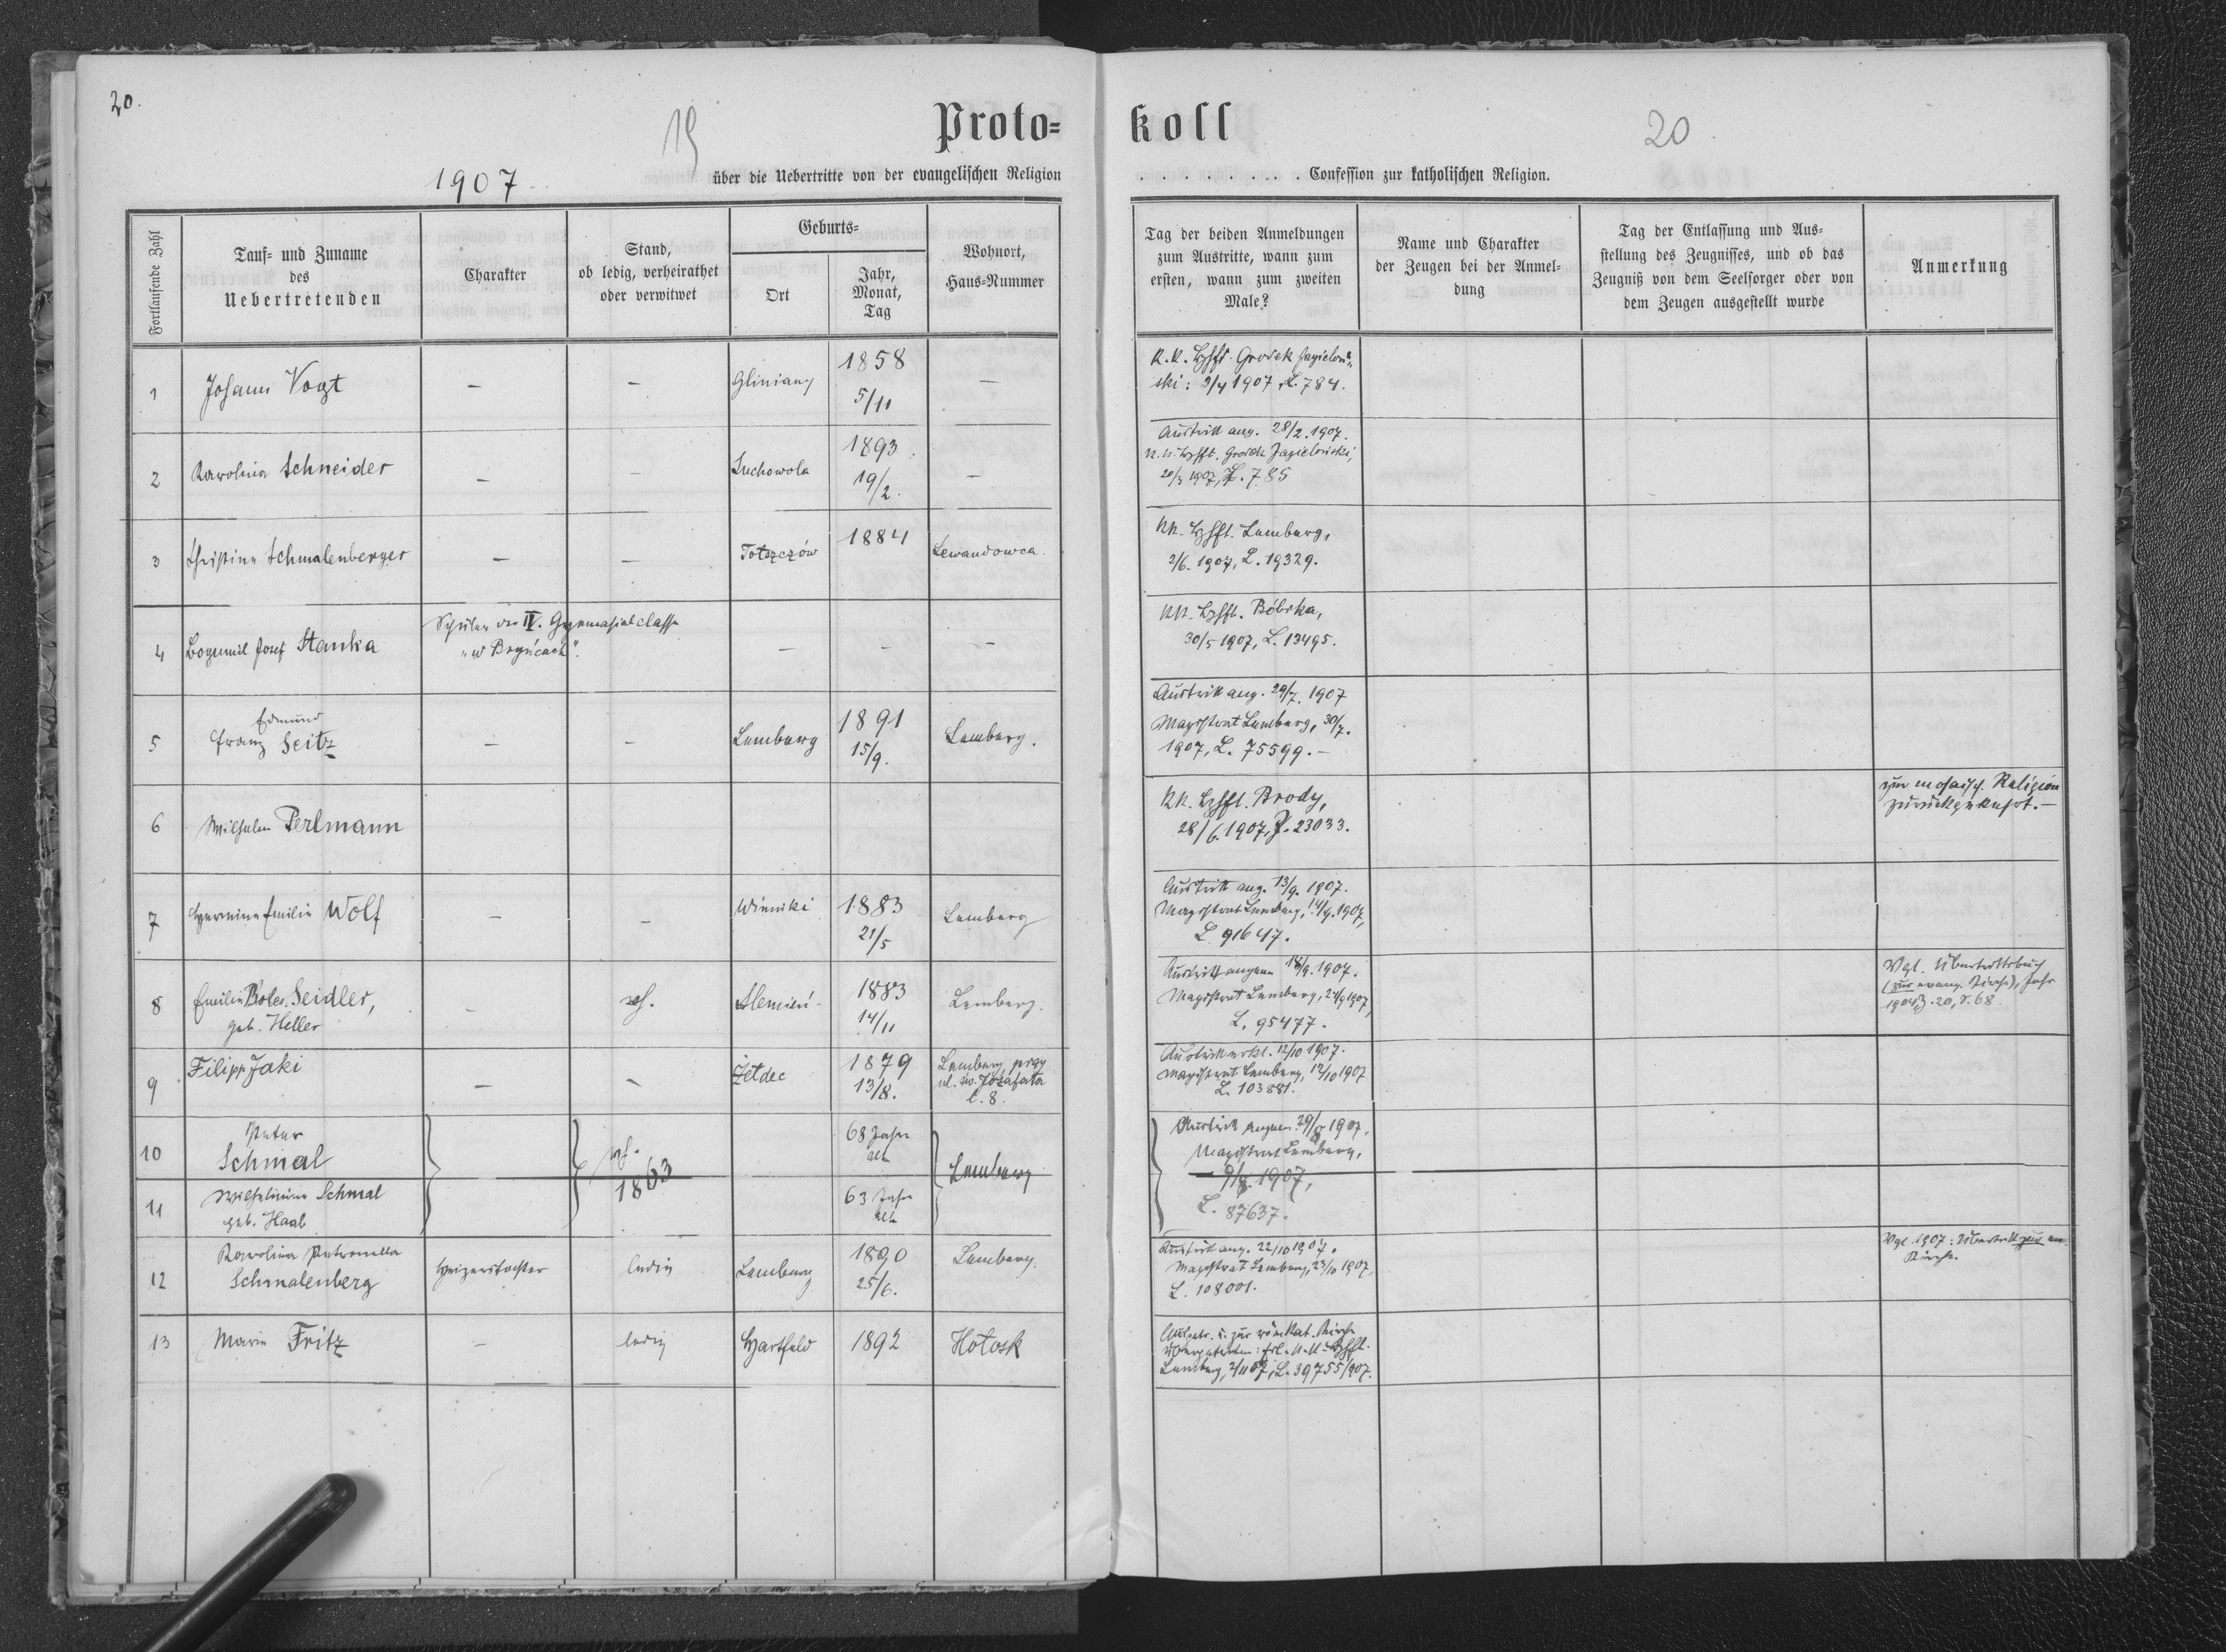 20.
19
20
Proto-
koll
1907
über die Uebertritte von der evangelischen Religion
. . . . . . . . . . Confession zur katholischen Religion.
Fortlaufende Zahl
Tauf- und Zuname
des
Uebertretenden
Charakter
Stand,
ob ledig, verheirathet
oder verwitwet
Geburts-
Ort
Jahr,
Monat,
Tag
Wohnort,
Haus-Nummer
Tag der beiden Anmeldungen
zum Austritte, wann zum
ersten, wann zum zweiten
Male?
Name und Charakter
der Zeugen bei der Anmel-
dung
Tag der Entlassung und Aus-
stellung des Zeugnisses, und ob das
Zeugniß von dem Seelsorger oder von
dem Zeugen ausgestellt wurde
Anmerkung
1
Johann Vogt
—
—
Gliniany
1858
5/11
—
K. K. Bzhft. Grodek Jagieloń-
ski: 3/4 1907, L. 784.
2
Karolina Schneider
—
—
Suchowola
1893
19/2.
—
Austritt ang. 28/2. 1907.
K. K. Bzhft. Grodek Jagieloński,
20/3 1907, Z. 785
3
Christine Schmalenberger
—
—
Totszczów
1884
Lewandowca
KK. Bzhft. Lemberg,
2/6. 1907, L. 19329.
4
Bogumil Josef Stanka
Schüler der IV. Gymnasialclasse
„w Bryńcach".
—
—
—
KK. Bzhft. Bóbrka,
30/5 1907, L. 13495.
5
Edmund
Franz Seitz
—
—
Lemberg
1891
15/9.
Lemberg.
Austritt ang. 29/7. 1907
Magistrat Lemberg, 30/7.
1907, L. 75599.—
6
Wilhelm Perlmann
KK. Bzhft. Brody,
28/6. 1907, Z. 23033.
zur mosaisch. Religion
zurückgekehrt.—
7
Hermine Emilie Wolf
—
—
Winniki
1883
21/5
Lemberg
Austritt ang. 13/9. 1907.
Magistrat Lemberg, 14/9. 1907,
L. 91647.
8
Emilie Boles. Seidler,
geb. Heller
—
vh.
1883
14/11
Lemberg.
Austritt angem 18/9. 1907.
Magistrat Lemberg, 24/9 1907,
L. 95477.
Vgl. Übertrittsbuch
(zur evang. Kirche), Jahr
1904, Z. 20, S. 68.
9
Filipp Jaki
—
—
Żełdec
1879
13/8.
Lemberg, przy
ul. św. Jozafata
l. 8.
Austritt erkl. 12/10 1907.
Magistrat Lemberg, 12/10 1907
L. 103881.
10
Peter
Schmal
vh.
1863
68 Jahre
alt
Lemberg
Austritt angem. 29/8 1907.
Magistrat Lemberg,
9/9. 1907,
L. 87637.
11
Wilhelmine Schmal
geb. Haab
63 Jahre
alt
12
Karolina Petronella
Schmalenberg
Heizerstochter
ledig
Lemberg
1890
25/6.
Lemberg.
Austritt ang. 22/10 1907.
Magistrat Lemberg, 23/10 1907,
L. 108001.
Vgl. 1907: Übertritt zur ev.
Kirche.
13
Marie Fritz
—
ledig
Hartfeld
1892
Hołosk
Ausgetr. u. zur röm kat. Kirche
übergetreten: Erl. K. K. Bzhft.
Lemberg, 2/11 07, L. 39755/907.